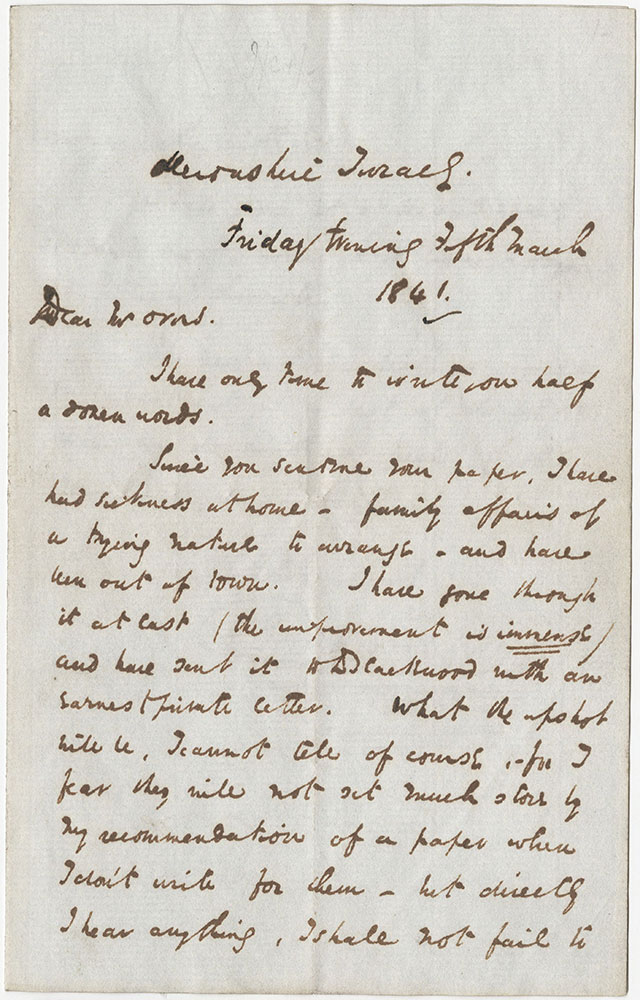 Devonshire Terrace.
Friday Evening Fifth March
1841.
Dear Mr Overs.
I have only time to write you half
a dozen words.
Since you sent me your paper, I have
had sickness at home – family affairs of
a trying nature to arrange – and have
been out of town. I have gone through
it at last (the improvement is immense)
and have sent it to Blackwood with an
earnest private letter. What the upshot
will be, I cannot tell of course, – for I
fear they will not set much store by
my recommendation of a paper when
I don't write for them – but directly
I hear anything, I shall not fail to